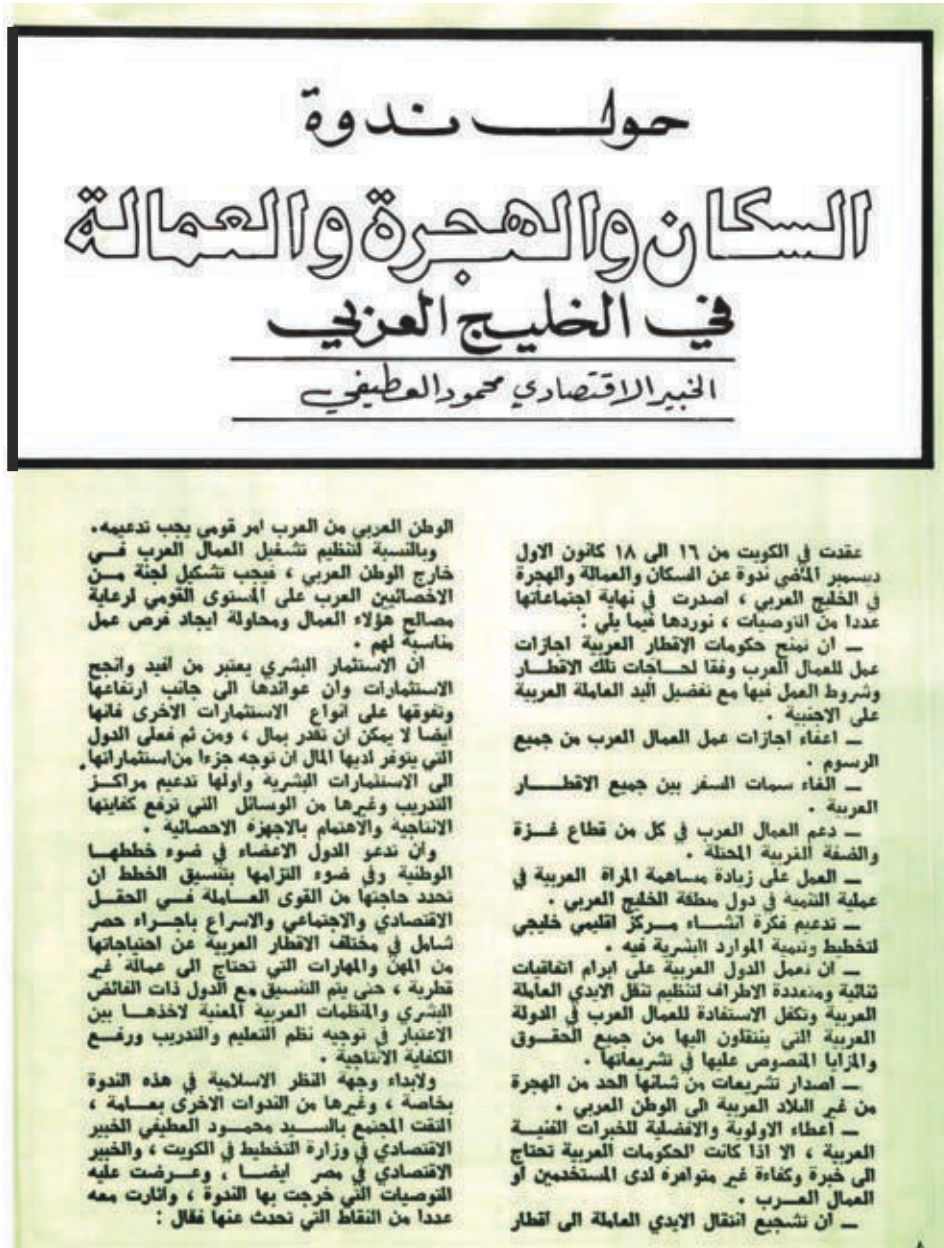 حول ندوة
السكان والهجرة والعمالة
في الخليج العربي
الخبير الاقتصادي محمود العطيفي
عقدت في الكويت من ١٦ الى ١٨ كانون الاول
ديسمبر الماضي ندوة عن السكان والعمالة والهجرة
في الخليج العربي ، اصدرت في نهاية اجتماعاتها
عددا من التوصيات ، نوردها فيما يلي :
ــ ان تمنح حكومات الاقطار العربية اجازات
عمل للعمال العرب وفقا لحــاجات تلك الاقطــار
وشروط العمل فيها مع تفضيل اليد العاملة العربية
على الاجنبية .
ــ اعفاء اجازات عمل العمال العرب من جميع
الرسوم .
ــ الغاء سمات السفر بين جميع الاقطــــار
العربية .
ــ دعم العمال العرب في كل من قطاع غــزة
والضفة الغربية المحتلة .
ــ العمل على زيادة مساهمة المراة العربية في
عملية التنمية في دول منطقة الخليج العربي .
ــ تدعيم فكرة انشــاء مــركز اقليمي خليجي
لتخطيط وتنمية الموارد البشرية فيه .
ــ ان تعمل الدول العربية على ابرام اتفاقيات
ثنائية ومتعددة الاطراف لتنظيم تنقل الايدي العاملة
العربية وتكفل الاستفادة للعمال العرب في الدولة
العربية التي ينتقلون اليها من جميع الحقــوق
والمزايا المنصوص عليها في تشريعاتها .
ــ اصدار تشريعات من شانها الحد من الهجرة
من غير البلاد العربية الى الوطن العربي .
ــ اعطاء الاولوية والافضلية للخبرات الفنيــة
العربية ، الا اذا كانت الحكومات العربية تحتاج
الى خبرة وكفاءة غير متوافرة لدى المستخدمين او
العمال العــرب .
ــ ان تشجيع انتقال الايدي العاملة الى اقطار
الوطن العربي من العرب امر قومي يجب تدعيمه.
وبالنسبة لتنظيم تشغيل العمال العرب فــي
خارج الوطن العربي ، فيجب تشكيل لجنة مــن
الاخصائيين العرب على المستوى القومي لرعاية
مصالح هؤلاء العمال ومحاولة ايجاد فرص عمل
مناسبة لهم .
ان الاستثمار البشري يعتبر من افيد وانجح
الاستثمارات وان عوائدها الى جانب ارتفاعها
وتفوقها على انواع الاستثمارات الاخرى فانها
ايضا لا يمكن ان تقدر بمال ، ومن ثم فعلى الدول
التي يتوفر لديها المال ان توجه جزءا من استثماراتها
الى الاستثمارات البشرية واولها تدعيم مراكــز
التدريب وغيرها من الوسائل التي ترفع كفايتها
الانتاجية والاهتمام بالاجهزة الاحصائية .
وان تدعو الدول الاعضاء في ضوء خططهــا
الوطنية وفي ضوء التزامها بتنسيق الخطط ان
تحدد حاجتها من القوى العــاملة فــي الحقــل
الاقتصادي والاجتماعي والاسراع باجــراء حصر
شامل في مختلف الاقطار العربية عن احتياجاتها
من المهن والمهارات التي تحتاج الى عمالة غير
قطرية ، حتى يتم التنسيق مع الدول ذات الفائض
البشري والمنظمات العربية المعنية لاخذهــا بين
الاعتبار في توجيه نظم التعليم والتدريب ورفــع
الكفاية الانتاجية .
ولابداء وجهة النظر الاسلامية في هذه الندوة
بخاصة ، وغيرها من الندوات الاخرى بعــامة ،
التقت المجتمع بالســيد محمــود العطيفي الخبير
الاقتصادي في وزارة التخطيط في الكويت ، والخبير
الاقتصادي في مصر ايضــا ، وعــرضت عليه
التوصيات التي خرجت بها الندوة ، واثارت معه
عددا من النقاط التي تحدث عنها فقال :
٨